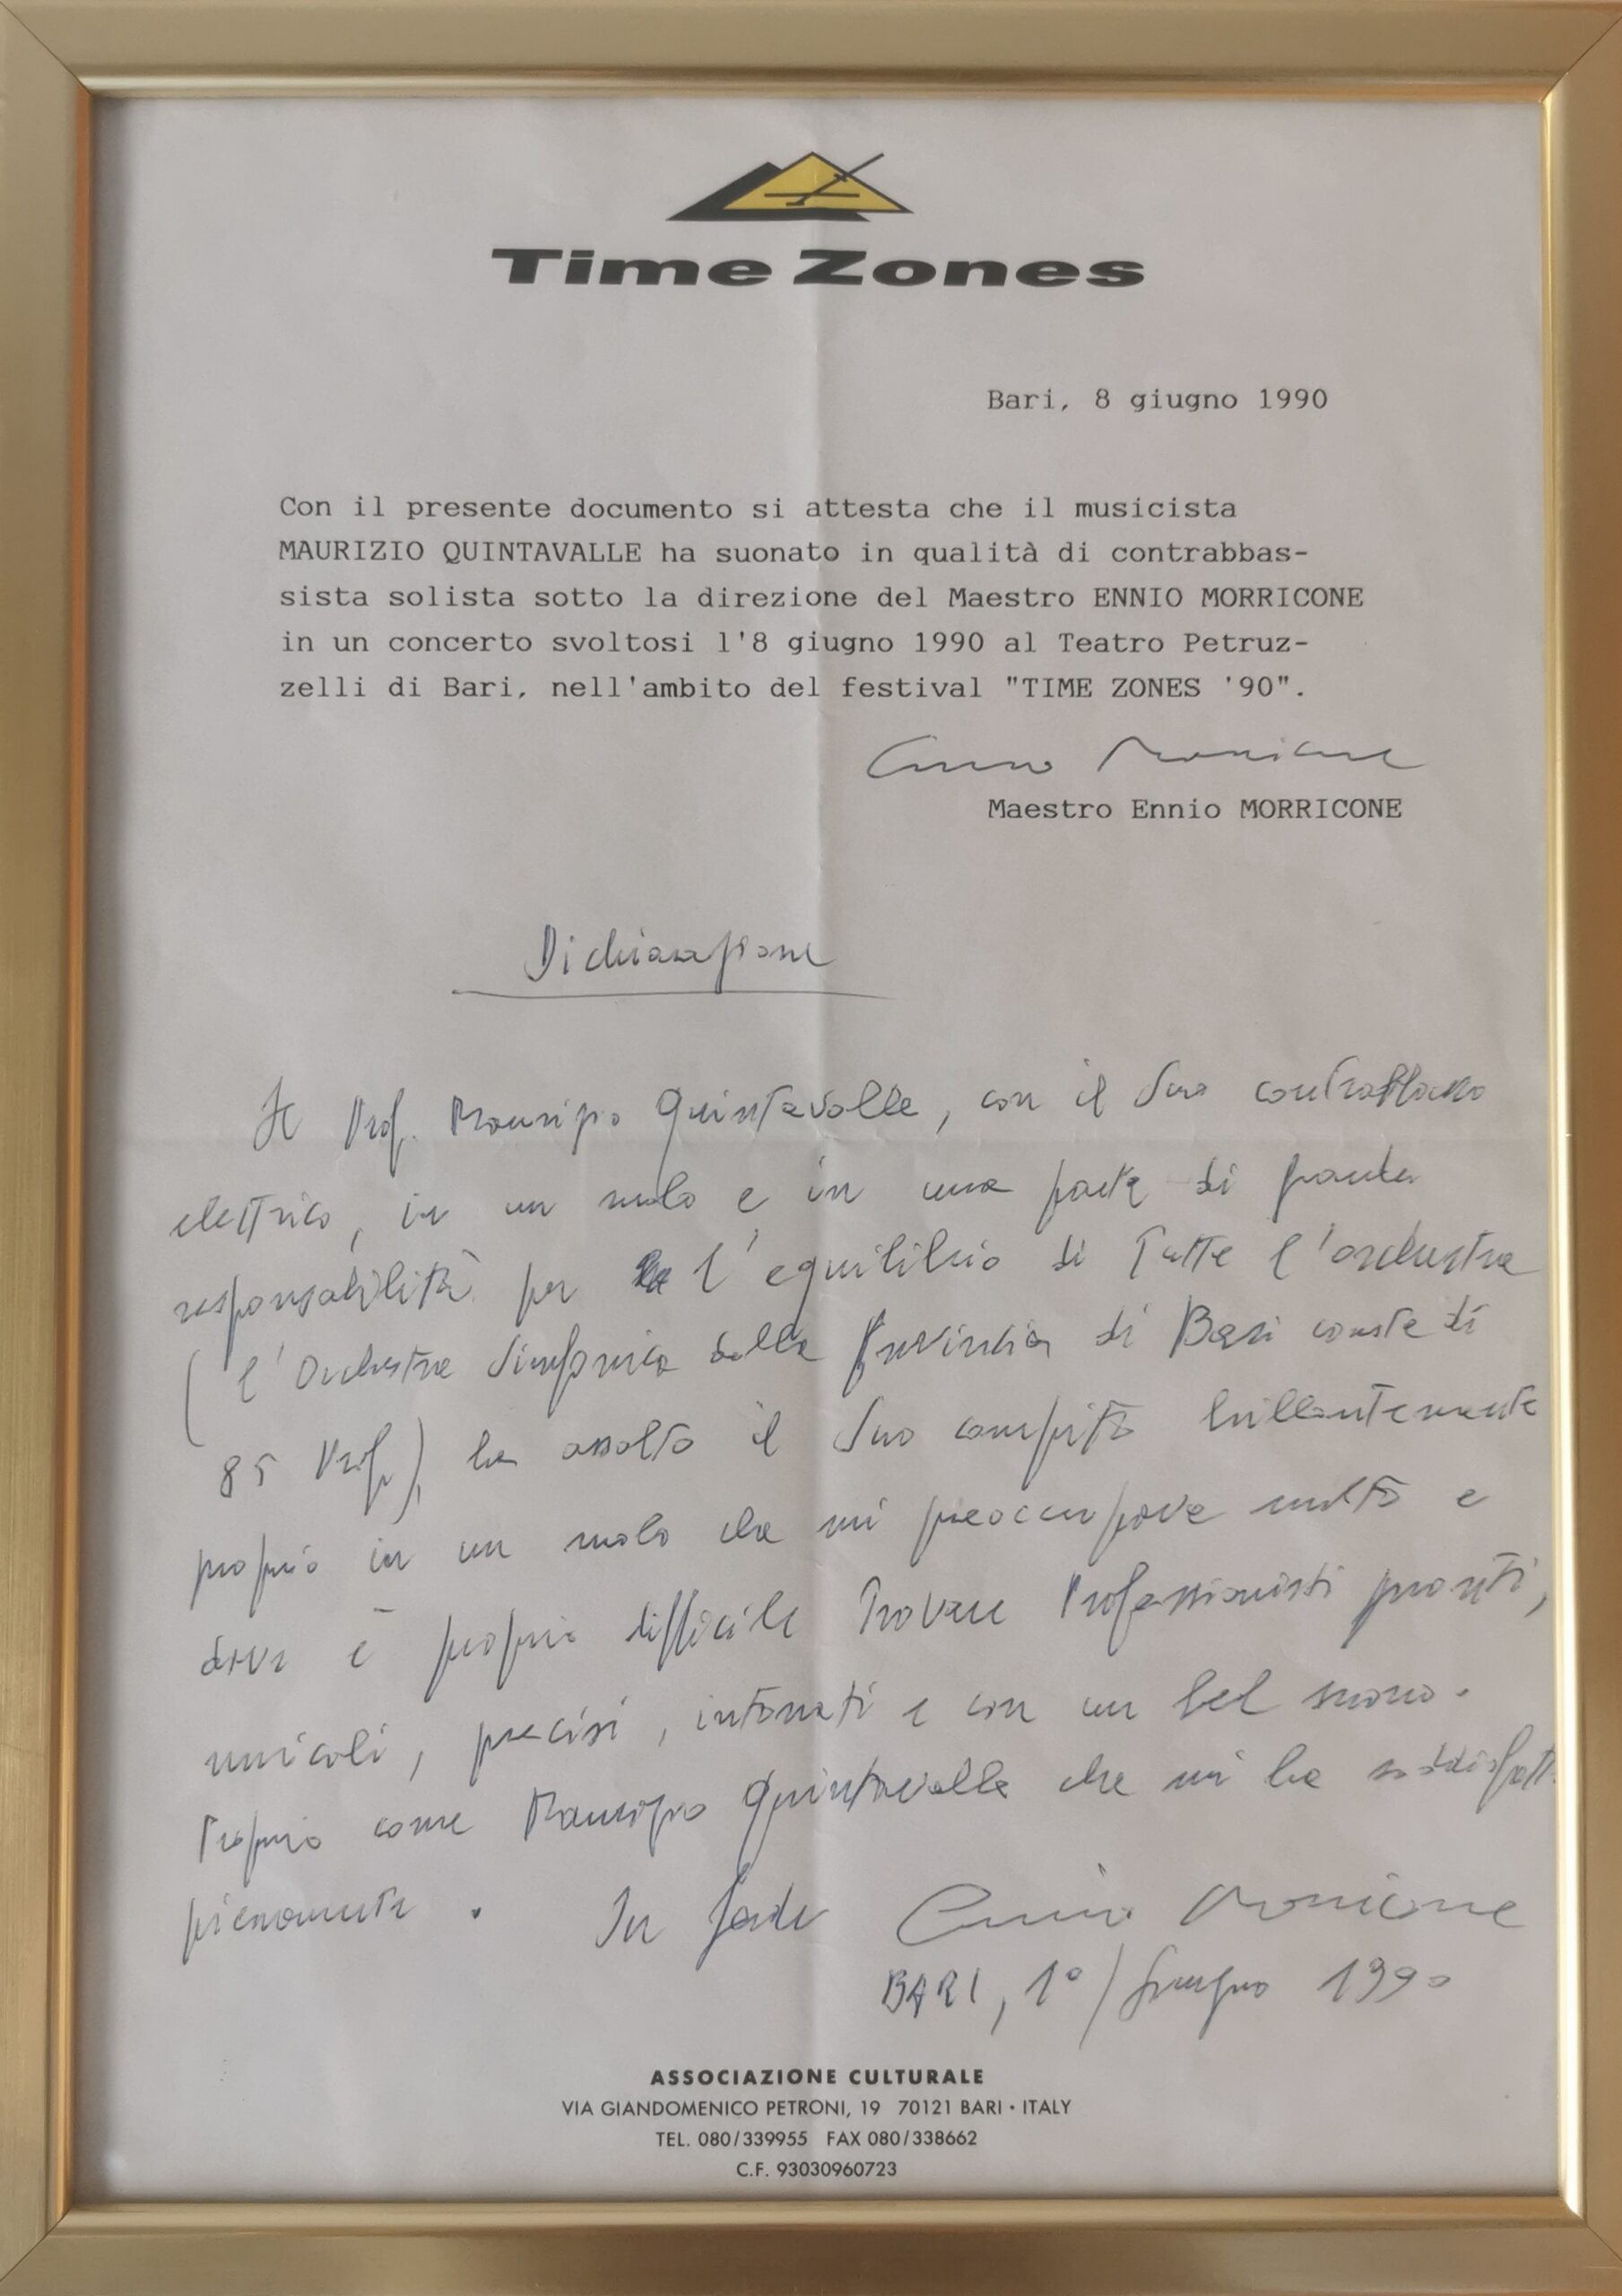 Time Zones
Bari, 8 giugno 1990
Con il presente documento si attesta che il musicista
MAURIZIO QUINTAVALLE ha suonato in qualità di contrabbas-
sista solista sotto la direzione del Maestro ENNIO MORRICONE
in un concerto svoltosi l'8 giugno 1990 al Teatro Petruz-
zelli di Bari, nell'ambito del festival "TIME ZONES '90".
Ennio Morricone
Maestro Ennio MORRICONE
Dichiarazione
Il Prof. Maurizio Quintavalle, con il Suo contrabbasso
elettrico, in un ruolo e in una parte di grande
responsabilità per l'equilibrio di tutta l'orchestra
(l'Orchestra Sinfonica della Provincia di Bari consta di
85 Prof.), ha assolto il Suo compito brillantemente
proprio in un ruolo che mi preoccupava molto e
dove è proprio difficile trovare Professionisti pronti,
musicali, precisi, intonati e con un bel suono.
Proprio come Maurizio Quintavalle che mi ha soddisfatto
pienamente. In fede Ennio Morricone
BARI, 1º/Giugno 1990
ASSOCIAZIONE CULTURALE
VIA GIANDOMENICO PETRONI, 19 70121 BARI • ITALY
TEL. 080/339955 FAX 080/338662
C.F. 93030960723